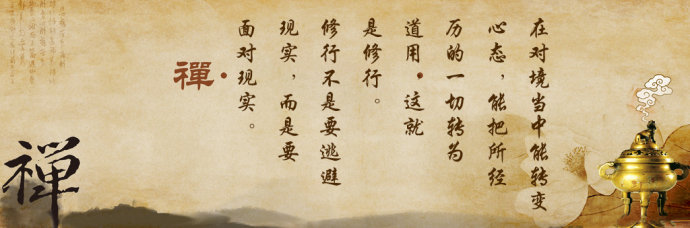 在对境当中能转变
心态，能把所经
历的一切转为
道用·这就
是修行。
修行不是要逃避
现实，而是要
面对现实。
禅·
禅